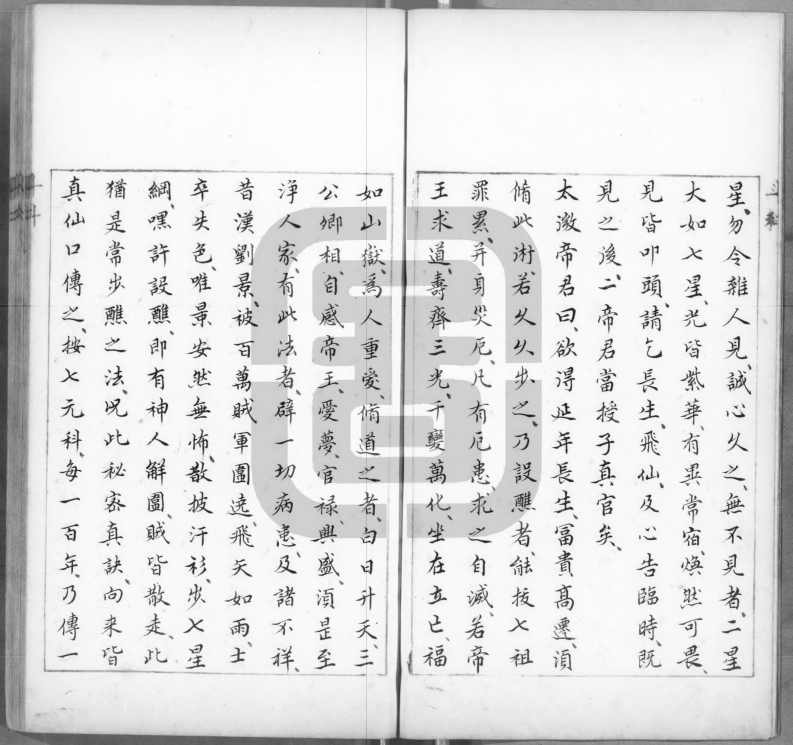 星、勿令雜人見、誠心久之、無不見者、二星
大如七星、光皆紫華、有異常宿、煥然可畏、
見皆叩頭、請乞長生、飛仙、及心告臨時、既
見之後、二帝君當授子真官矣、
太微帝君曰、欲得延年長生、冨貴髙遷、湏
脩此術、若久久步之、乃設醮者、能拔七祖
罪累、并身災厄、凡有厄患、求之自滅、若帝
王求道、壽齊三光、千變萬化、坐在立亡、福
如山嶽、爲人重愛、脩道之者、白日升天、三
公卿相、自感帝王、愛夢、官禄興盛、湏是至
淨人家、有此法者、辟一切病患、及諸不祥、
昔漢劉景、被百萬賊軍圍遶、飛矢如雨、士
卒失色、唯景安然無怖、散披汗衫、步七星
綱、嘿許設醮、即有神人解圍、賊皆散走、此
猶是常步醮之法、况此秘宻真訣、向来皆
真仙口傳之、按七元科、每一百年、乃傳一